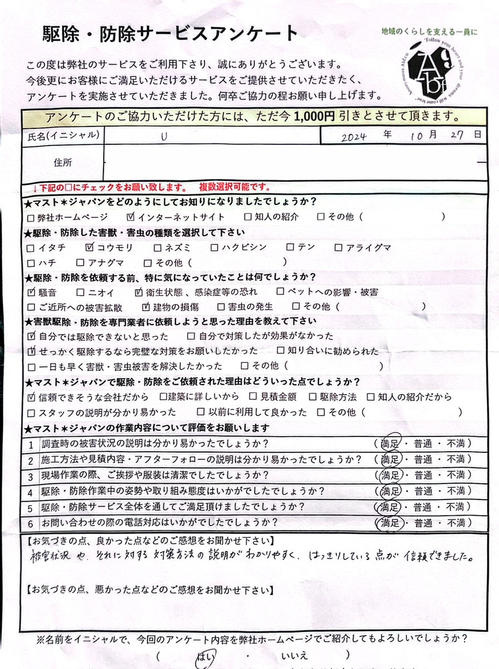 駆除・防除サービスアンケート
地域のくらしを支える一員に
この度は弊社のサービスをご利用下さり、誠にありがとうございます。
今後更にお客様にご満足いただけるサービスをご提供させていただきたく、
アンケートを実施させていただきました。何卒ご協力の程お願い申し上げます。
アンケートのご協力いただけた方には、ただ今1,000円引きとさせて頂きます。
氏名(イニシャル) U 2024 年 10 月 27 日
住所
↓下記の□にチェックをお願い致します。 複数選択可能です。
★マスト★ジャパンをどのようにしてお知りになりましたでしょうか?
□弊社ホームページ ☑インターネットサイト □知人の紹介 □その他( )
★駆除・防除した害獣・害虫の種類を選択して下さい
□イタチ ☑コウモリ □ネズミ □ハクビシン □テン □アライグマ
□ハチ □アナグマ □その他( )
★駆除・防除を依頼する前、特に気になっていたことは何でしょうか?
☑騒音 □ニオイ ☑衛生状態、感染症等の恐れ □ペットへの影響・被害
□ご近所への被害拡散 ☑建物の損傷 □害虫の発生 □その他( )
★害獣駆除・防除を専門業者に依頼しようと思った理由を教えて下さい
☑自分では駆除できないと思った □自分で対策したが効果がなかった
☑せっかく駆除するなら完璧な対策をお願いしたかった □知り合いに勧められた
□一日も早く害獣・害虫被害を解決したかった □その他( )
★マスト★ジャパンで駆除・防除をご依頼された理由はどういった点でしょうか?
☑信頼できそうな会社だから □建築に詳しいから □見積金額 □駆除方法 □知人の紹介だから
□スタッフの説明が分かり易かった □以前に利用して良かった □その他( )
★マスト★ジャパンの作業内容について評価をお願いします
1 調査時の被害状況の説明は分かり易かったでしょうか? (満足・普通・不満)
2 施工方法や見積内容・アフターフォローの説明は分かり易かったでしょうか? (満足・普通・不満)
3 現場作業の際、ご挨拶や服装は清潔でしたでしょうか? (満足・普通・不満)
4 駆除・防除作業中の姿勢や取り組み態度はいかがでしたでしょうか? (満足・普通・不満)
5 駆除・防除サービス全体を通してご満足頂けましたでしょうか? (満足・普通・不満)
6 お問い合わせの際の電話対応はいかがでしたでしょうか? (満足・普通・不満)
【お気づきの点、良かった点などのご感想をお聞かせ下さい】
被害状況や、それに対する対策方法の説明がわかりやすく、はっきりしている点が信頼できました。
【お気づきの点、悪かった点などのご感想をお聞かせ下さい】
※名前をイニシャルで、今回のアンケート内容を弊社ホームページでご紹介してもよろしいでしょうか?
( はい ・ いいえ )